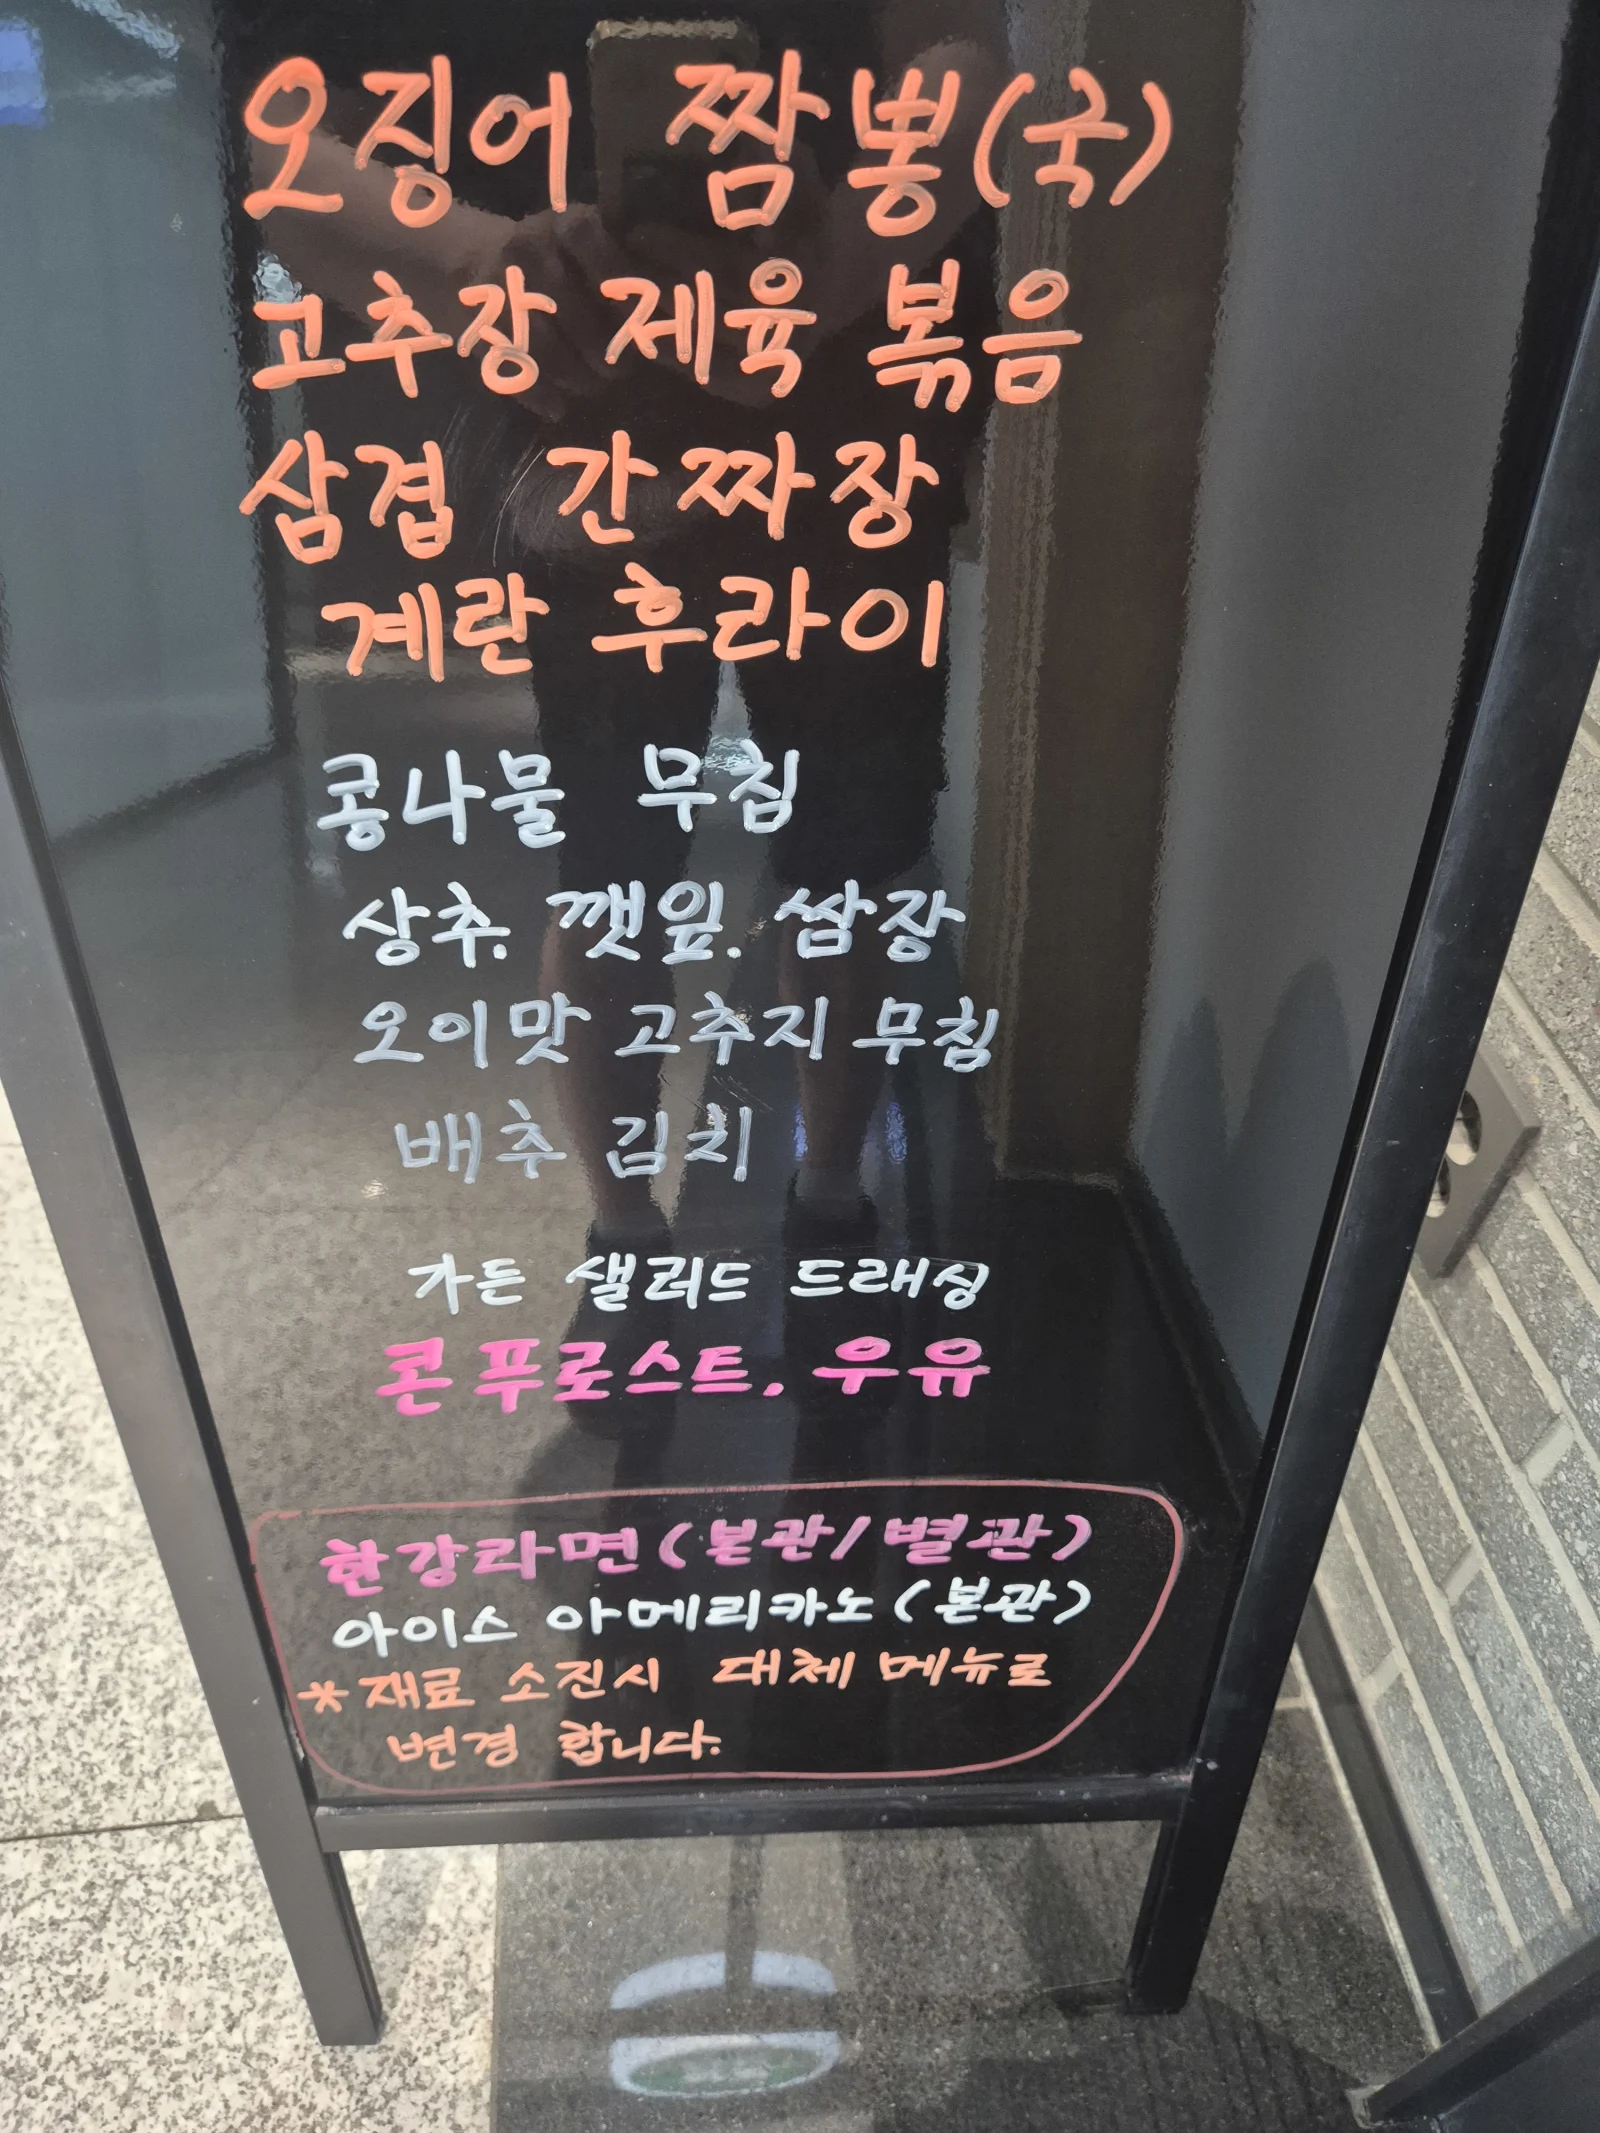 오징어 짬뽕(국)
고추장 제육 볶음
삼겹 간짜장
계란 후라이
콩나물 무침
상추. 깻잎. 쌈장
오이맛 고추지 무침
배추 김치
가든 샐러드 드래싱
콘푸로스트. 우유
한강라면(본관/별관)
아이스 아메리카노(본관)
*재료 소진시 대체 메뉴로
변경 합니다.